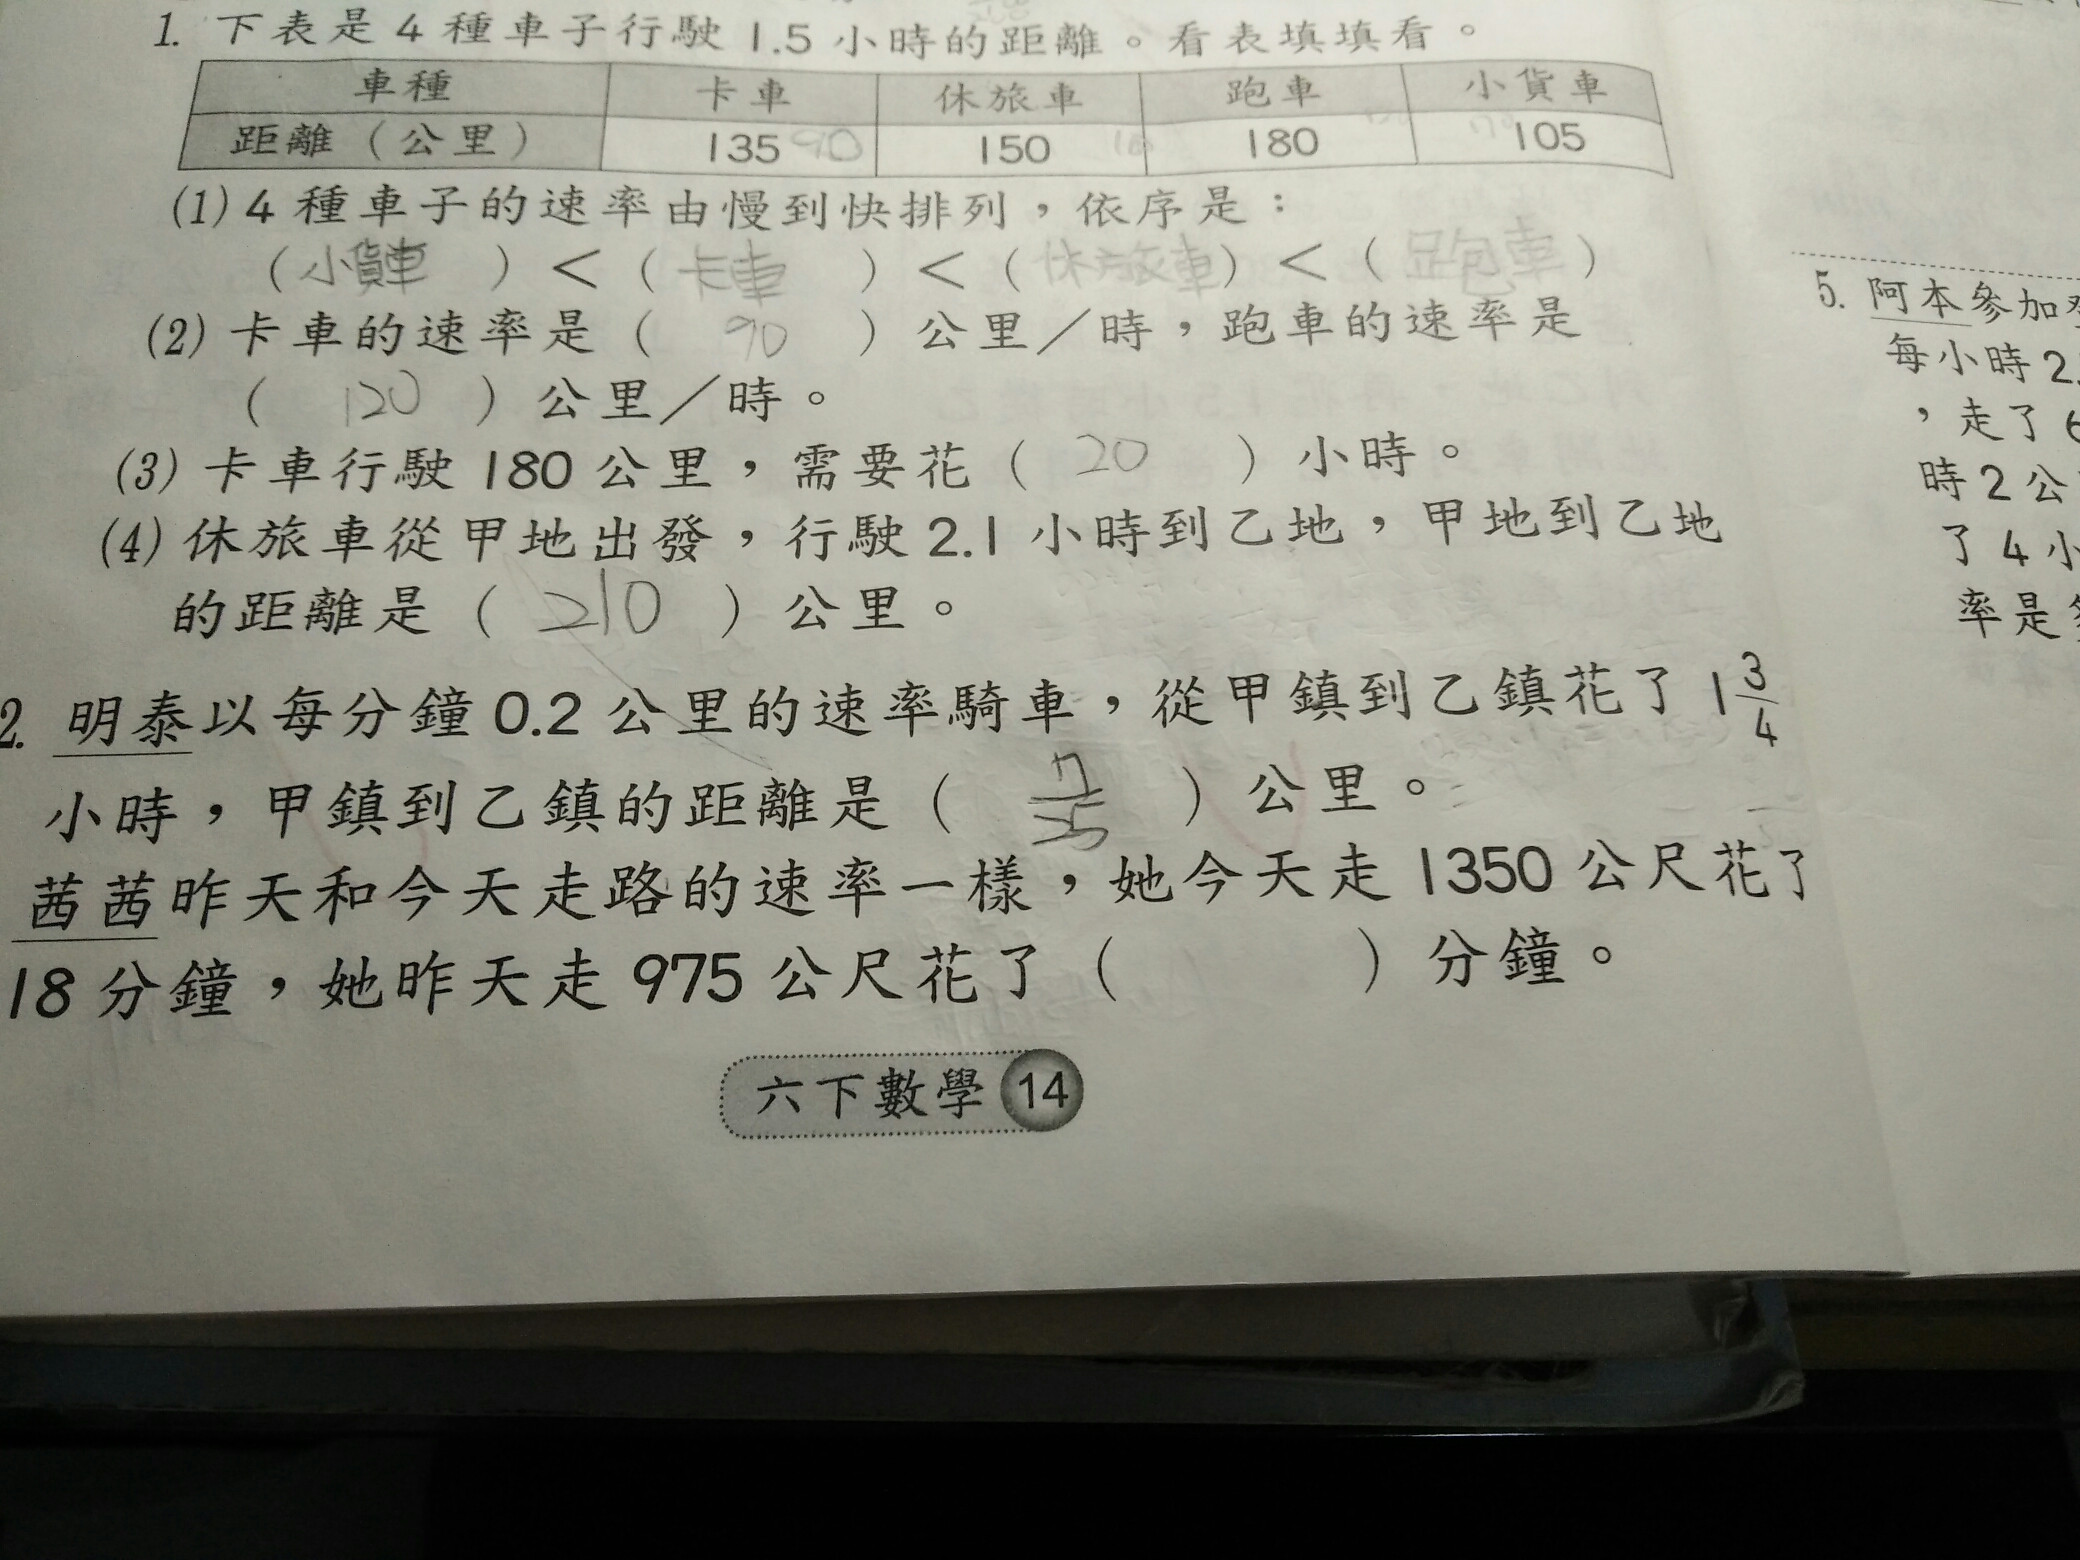 1. 下表是4種車子行駛1.5小時的距離。看表填填看。
車種 卡車 休旅車 跑車 小貨車
距離(公里) 135 90 150 180 105
(1)4種車子的速率由慢到快排列,依序是:
(小貨車)<(卡車)<(休旅車)<(跑車)
(2)卡車的速率是(90)公里/時,跑車的速率是
(120)公里/時。
(3)卡車行駛180公里,需要花(20)小時。
(4)休旅車從甲地出發,行駛2.1小時到乙地,甲地到乙地
的距離是(210)公里。
2. 明泰以每分鐘0.2公里的速率騎車,從甲鎮到乙鎮花了1 3/4
小時,甲鎮到乙鎮的距離是(7/35)公里。
茜茜昨天和今天走路的速率一樣,她今天走1350公尺花了
18分鐘,她昨天走975公尺花了( )分鐘。
六下數學 14
5. 阿本參加
每小時2.
,走了6
時2公
了4小
率是